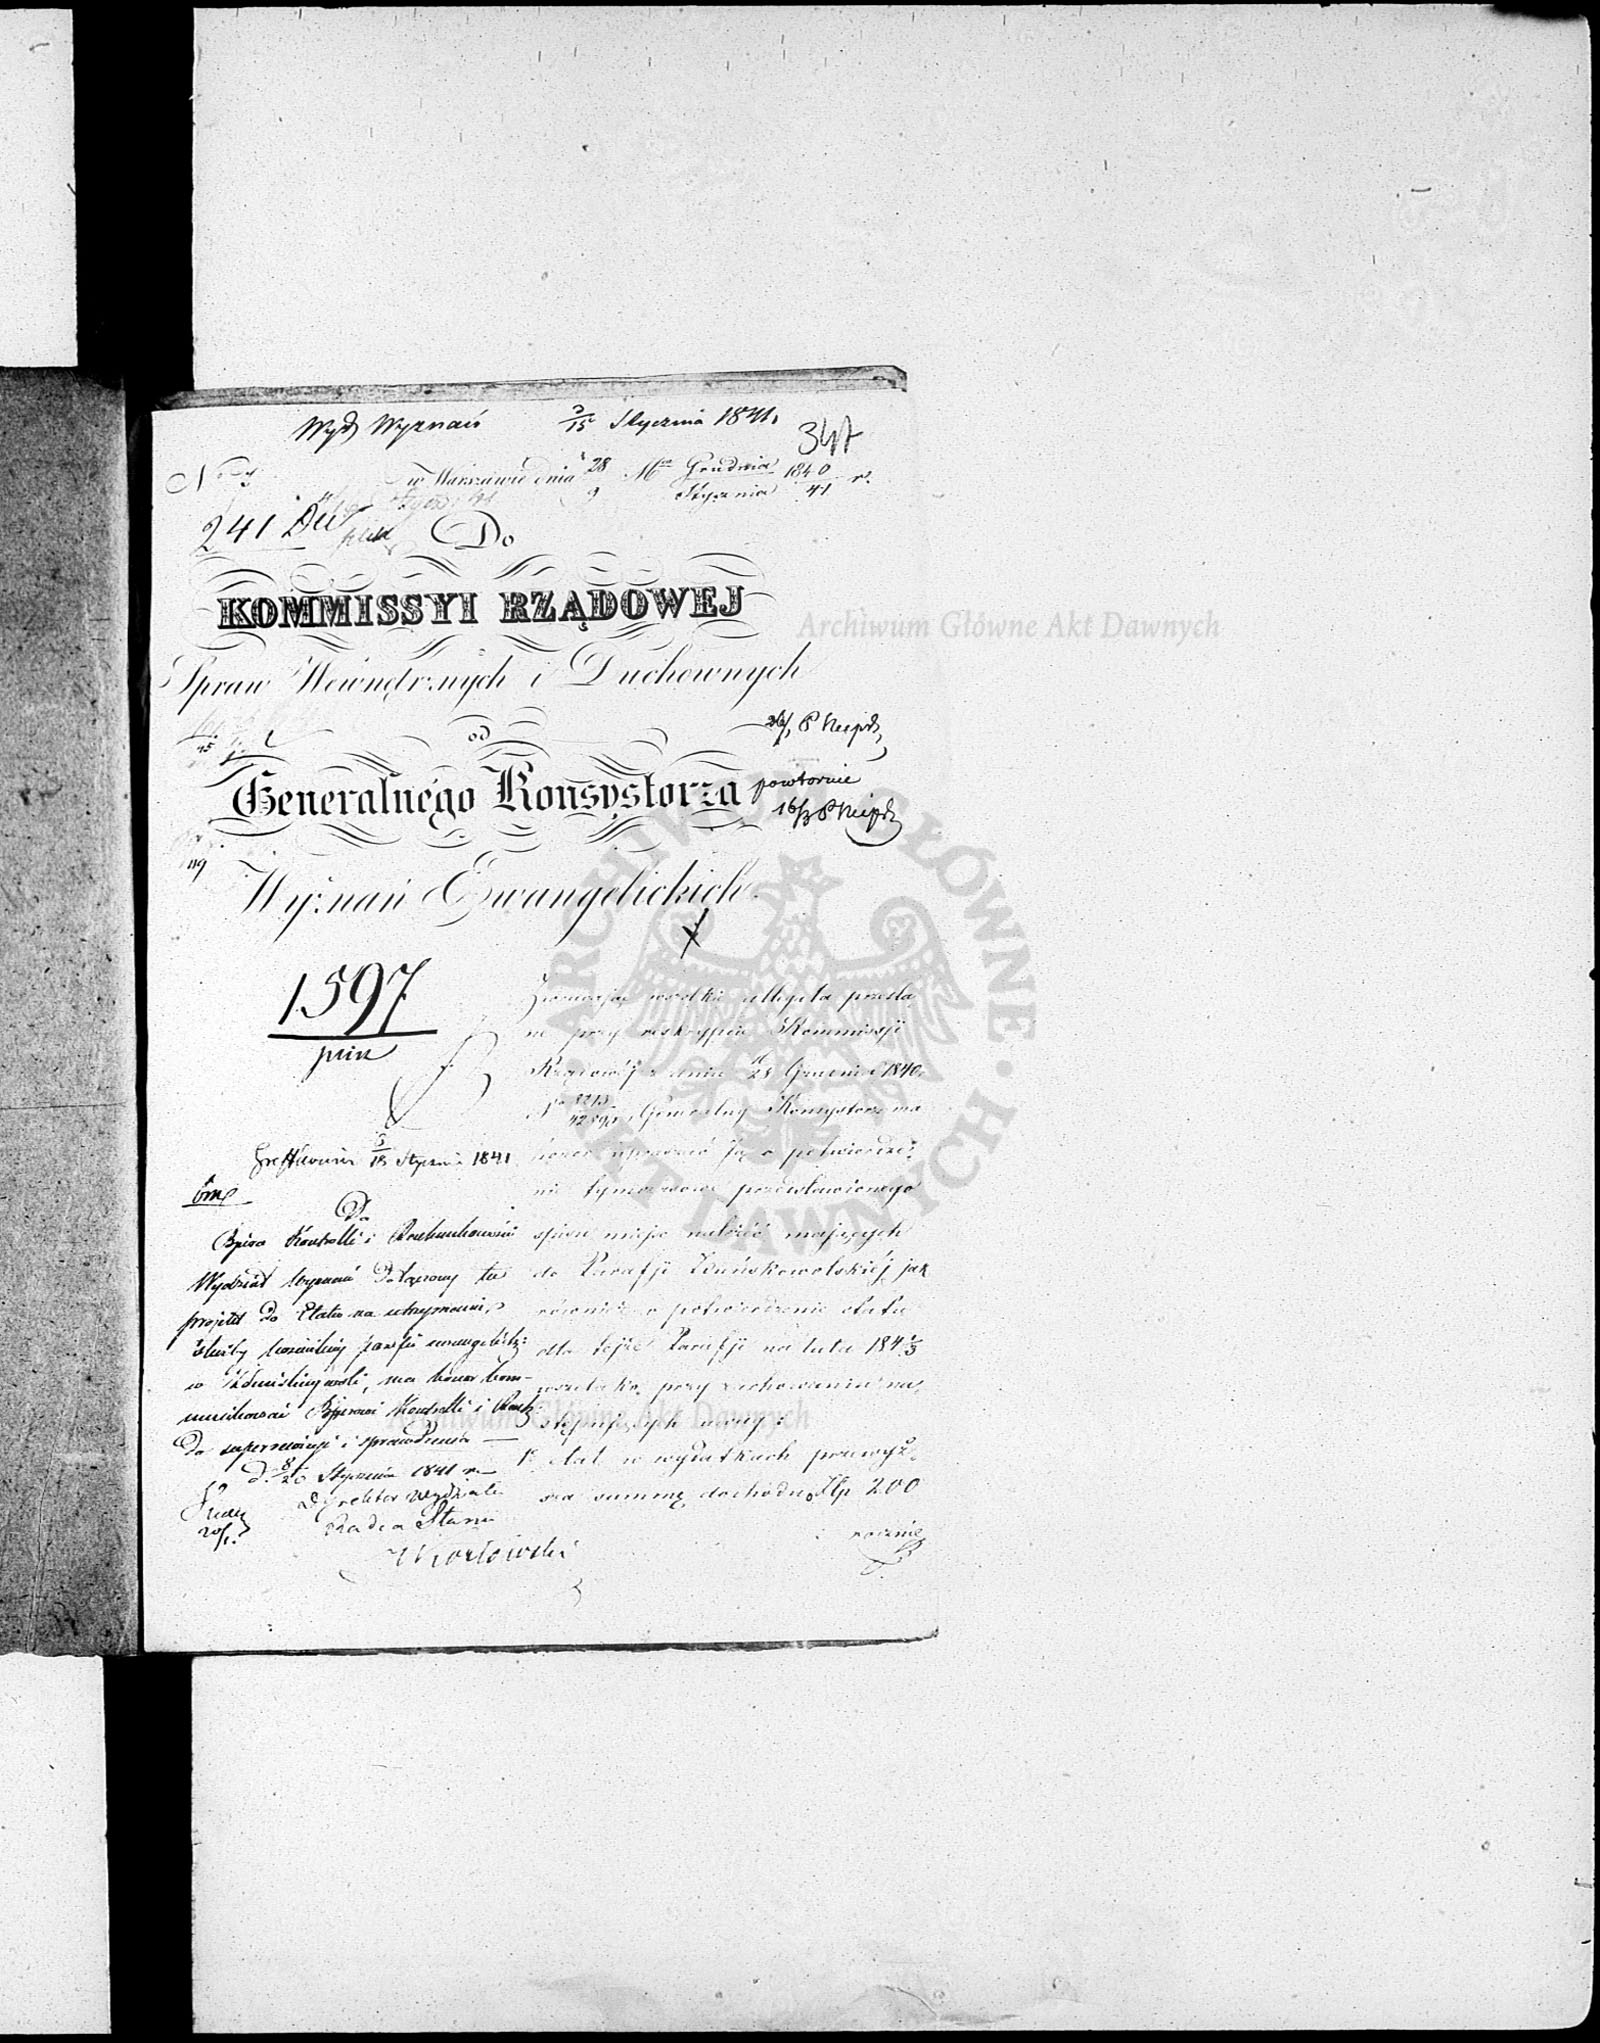 Wydz Wyznań 3/15 Stycznia 1841.
347
w Warszawie dnia 28 Mca Grudnia 1840 r.
9 Stycznia 41
241
Do
KOMMISSYI RZĄDOWEJ
Spraw Wewnętrznych i Duchownych
od
Generalnego Konsystorza
powtornie
Wyznań Ewangelickich.
Archiwum Główne Akt Dawnych
1597
Zwracając wszelkie allegata przesła
ne przy reskrypcie Kommissji
Rządowéj z dnia 16/28 Grudnia 1840.
Generalny Konsystorz ma
honor upraszać Ją o potwierdze
nie tymczasowe przedstawionego
spisu miejsc należeć mających
do Parafji Zduńskowolskiéj jak
również o potwierdzenie etatu
dla tejże Parafji na lata 184 1/3
wszelako przy zachowaniu na
stępujących uwag:
1o etat w wydatkach przewyż
sza summę dochodu o Złp 200
rocznie
3/15 Stycznia 1841
Do
Biura Kontrolli i Rachunkowości
Wydział Wyznań Dołączony tu
projekt do Etatu na utrzymanie
służby kościelnej parafii ewangelick:
w Zduńskiejwoli, ma honor kom-
munikować Biurowi Kontrolli i Rach
do superrewizyi i sprawdzenia
d. 8/20 Stycznia 1841 r.
Dyrektor Wydziału
Radca Stanu
Archiwum Główne Akt Dawnych
ARCHIWUM GŁÓWNE AKT DAWNYCH